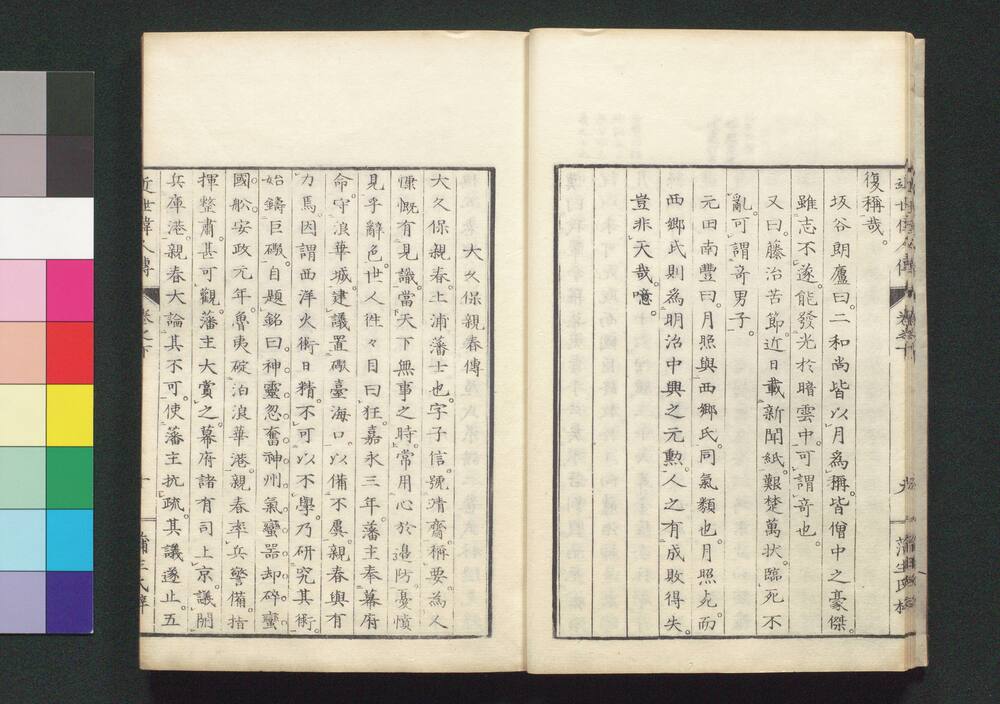 復稱哉。
坂谷朗廬曰。二和尚皆以月爲稱。皆僧中之豪傑。
雖志不遂。能發光於暗雲中。可謂奇也。
又曰。藤治苦節。近日載新聞紙。艱楚萬狀。臨死不
亂。可謂奇男子。
元田南豐曰。月照與西鄉氏。同氣類也。月照死。而
西鄉氏則爲明治中興之元勲。人之有成敗得失。
豈非天哉。噫。
大久保親春傳
大久保親春。土浦藩士也。字子信。號靖齋。稱要。為人
慷慨有見識。當天下無事之時。常用心於邊防。憂憤
見乎辭色。世人往々目曰狂。嘉永三年。藩主奉幕府
命。守浪華城。建議置礮臺海口。以備不虞。親春與有
力焉。因謂西洋火術日精。不可以不學。乃研究其術。
始鑄巨礮。自題銘曰。神靈忽奮神州氣。蠻器却碎蠻
國舩。安政元年。魯夷碇泊浪華港。親春率兵警備。指
揮整肅。甚可觀。藩主大賞之。幕府諸有司上京。議開
兵庫港。親春大論其不可。使藩主抗疏。其議遂止。五
近世偉人傳 卷之下 十 蒲生氏梓